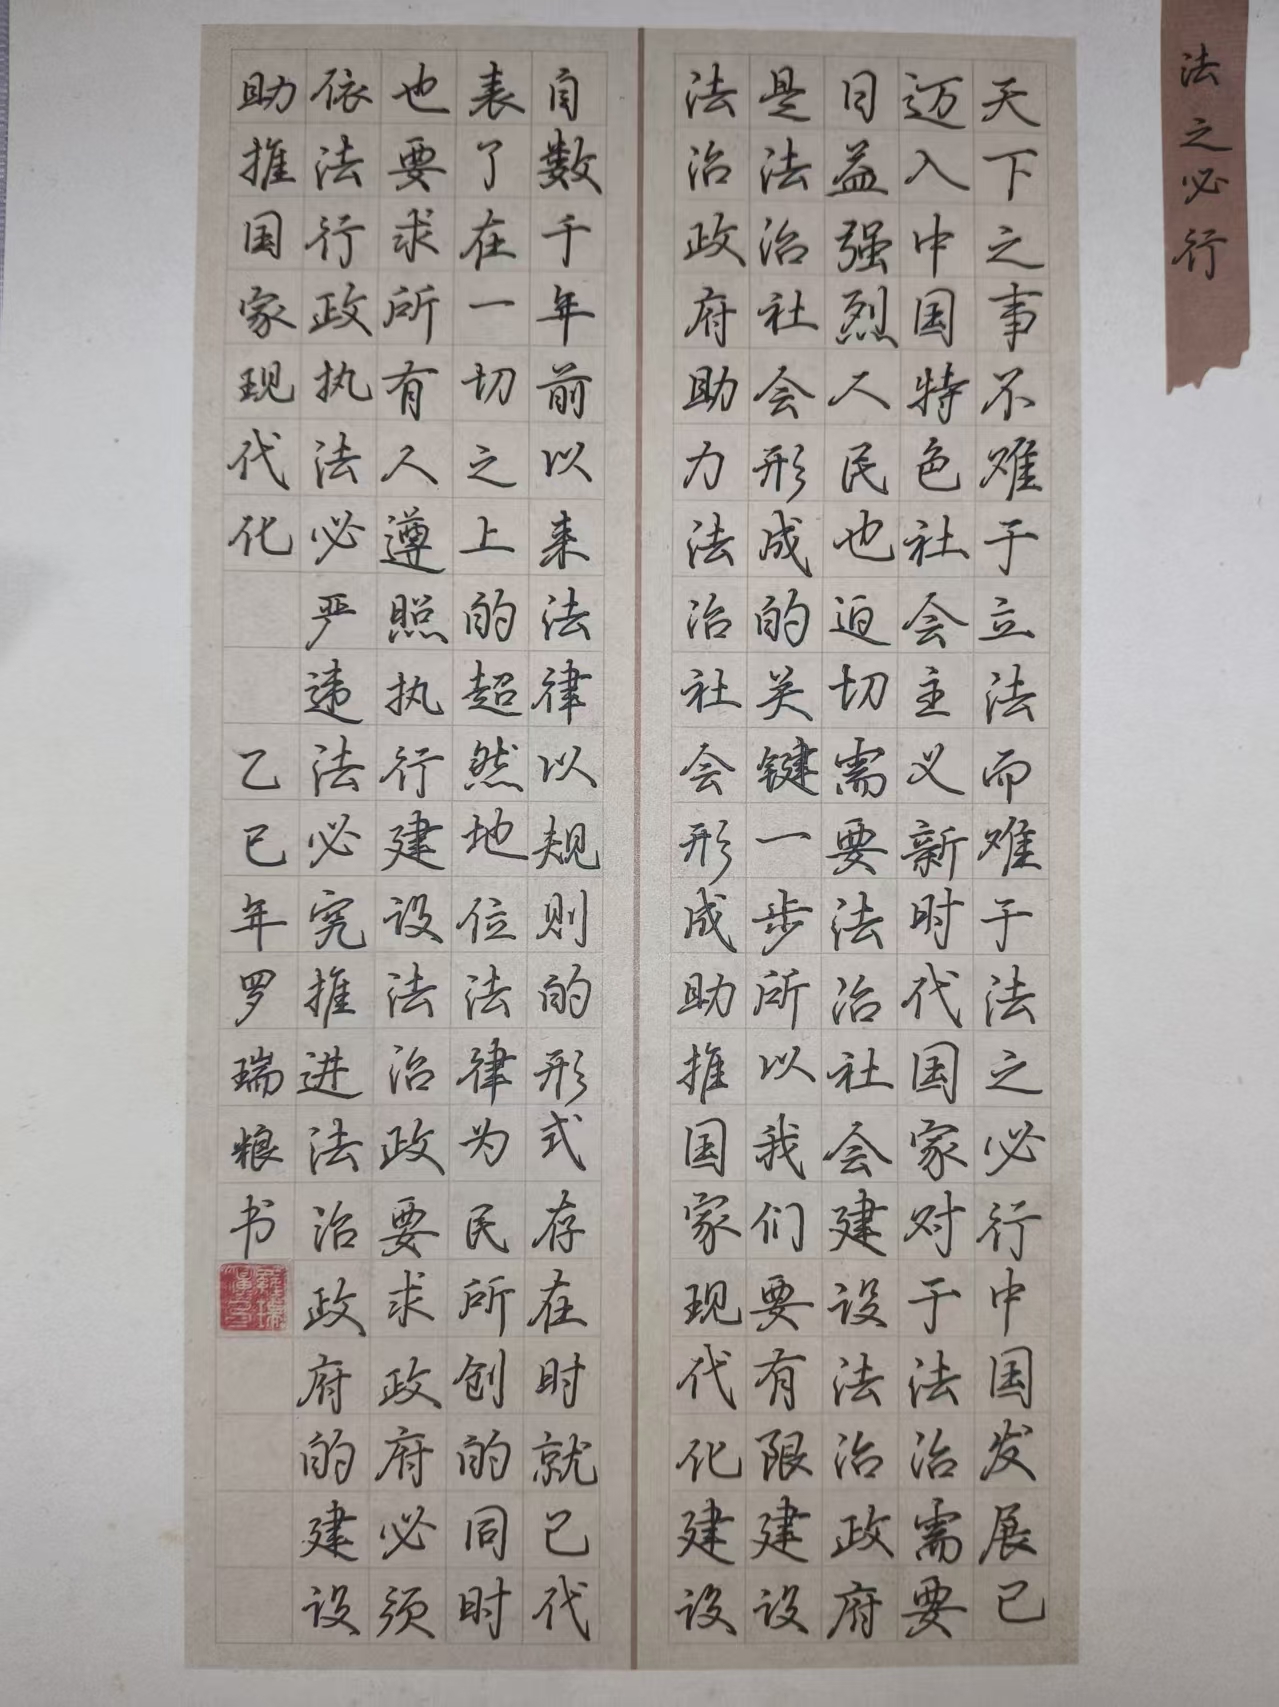 法之必行
天下之事不难于立法而难于法之必行中国发展已
迈入中国特色社会主义新时代国家对于法治需要
日益强烈人民也迫切需要法治社会建设法治政府
是法治社会形成的关键一步所以我们要有限建设
法治政府助力法治社会形成助推国家现代化建设
自数千年前以来法律以规则的形式存在时就已代
表了在一切之上的超然地位法律为民所创的同时
也要求所有人遵照执行建设法治政要求政府必须
依法行政执法必严违法必究推进法治政府的建设
助推国家现代化 乙巳年罗瑞粮书